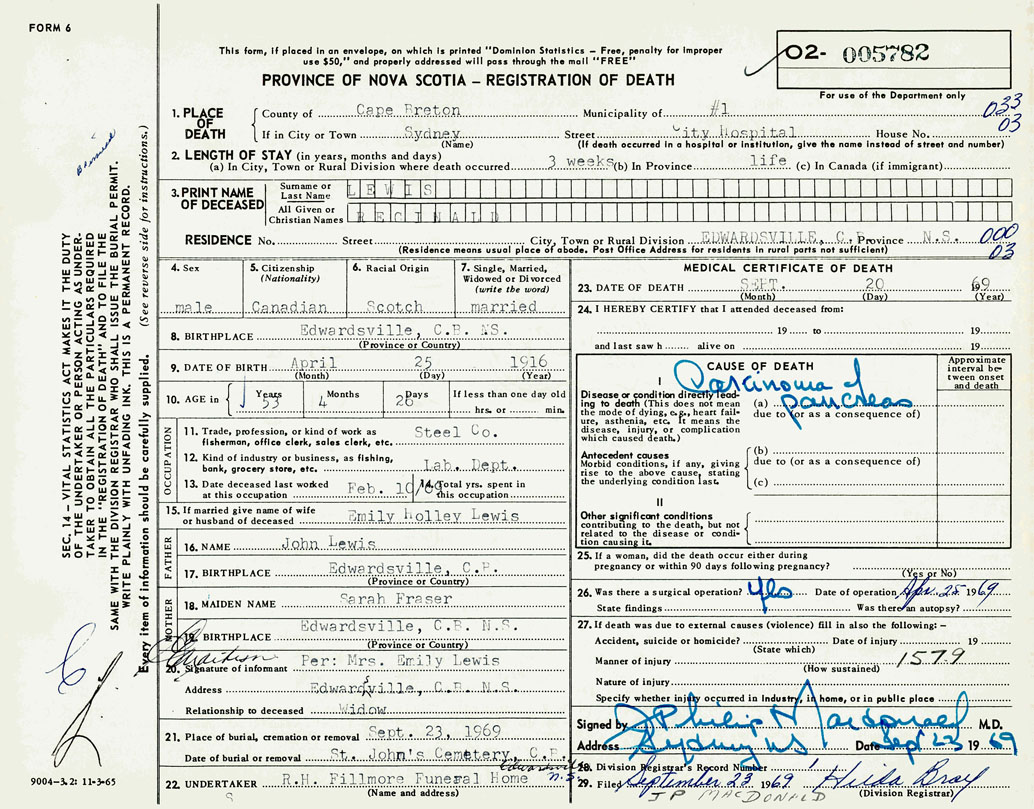 FORM 6
This form, if placed in an envelope, on which is printed "Dominion Statistics – Free, penalty for improper
use $50," and properly addressed will pass through the mail "FREE"
PROVINCE OF NOVA SCOTIA – REGISTRATION OF DEATH
02- 005782
For use of the Department only
SEC. 14 – VITAL STATISTICS ACT MAKES IT THE DUTY
OF THE UNDERTAKER OR PERSON ACTING AS UNDER-
TAKER TO OBTAIN ALL THE PARTICULARS REQUIRED
IN THE "REGISTRATION OF DEATH" AND TO FILE THE
SAME WITH THE DIVISION REGISTRAR WHO SHALL ISSUE THE BURIAL PERMIT.
WRITE PLAINLY WITH UNFADING INK. THIS IS A PERMANENT RECORD.
Every item of information should be carefully supplied. (See reverse side for instructions.)
1. PLACE OF DEATH County of Cape Breton Municipality of #1 033
If in City or Town Sydney Street City Hospital House No. 03
(Name) (If death occurred in a hospital or institution, give the name instead of street and number)
2. LENGTH OF STAY (in years, months and days)
(a) In City, Town or Rural Division where death occurred 3 weeks (b) In Province life (c) In Canada (if immigrant)
3. PRINT NAME OF DECEASED Surname or Last Name LEWIS
All Given or Christian Names REGINALD
RESIDENCE No. Street City, Town or Rural Division EDWARDSVILLE, C.B. Province N.S. 000
(Residence means usual place of abode. Post Office Address for residents in rural parts not sufficient) 03
4. Sex male
5. Citizenship (Nationality) Canadian
6. Racial Origin Scotch
7. Single, Married, Widowed or Divorced (write the word) married
8. BIRTHPLACE Edwardsville, C.B. NS.
(Province or Country)
9. DATE OF BIRTH April 25 1916
(Month) (Day) (Year)
10. AGE in Years 53 Months 4 Days 26 If less than one day old
hrs. or min.
OCCUPATION
11. Trade, profession, or kind of work as Steel Co.
fisherman, office clerk, sales clerk, etc.
12. Kind of industry or business, as fishing, Lab. Dept.
bank, grocery store, etc.
13. Date deceased last worked at this occupation Feb. 10/69 14. Total yrs. spent in this occupation
15. If married give name of wife or husband of deceased Emily Holley Lewis
FATHER
16. NAME John Lewis
17. BIRTHPLACE Edwardsville, C.B.
(Province or Country)
MOTHER
18. MAIDEN NAME Sarah Fraser
19. BIRTHPLACE Edwardsville, C.B. N.S.
(Province or Country)
20. Signature of informant Per: Mrs. Emily Lewis
Address Edwardsville, C.B. N.S.
Relationship to deceased Widow
21. Place of burial, cremation or removal Sept. 23, 1969
Date of burial or removal St. John's Cemetery, C.B.
Edwardsville N.S.
22. UNDERTAKER R.H. Fillmore Funeral Home
(Name and address)
9004–3.2: 11-3-65
MEDICAL CERTIFICATE OF DEATH
23. DATE OF DEATH SEPT. 20 1969
(Month) (Day) (Year)
24. I HEREBY CERTIFY that I attended deceased from:
19 to 19
and last saw h alive on 19
CAUSE OF DEATH
Approximate interval between onset and death
I
Disease or condition directly lead-
ing to death (This does not mean
the mode of dying, e.g., heart fail-
ure, asthenia, etc. It means the
disease, injury, or complication
which caused death.)
(a) Carcinoma of pancreas
due to (or as a consequence of)
Antecedent causes
Morbid conditions, if any, giving
rise to the above cause, stating
the underlying condition last.
(b)
due to (or as a consequence of)
(c)
II
Other significant conditions
contributing to the death, but not
related to the disease or condi-
tion causing it.
25. If a woman, did the death occur either during
pregnancy or within 90 days following pregnancy?
(Yes or No)
26. Was there a surgical operation? Yes Date of operation Apr. 25 1969
State findings Was there an autopsy?
27. If death was due to external causes (violence) fill in also the following: –
Accident, suicide or homicide? Date of injury 19
(State which)
Manner of injury 157.9
(How sustained)
Nature of injury
Specify whether injury occurred in Industry, in home, or in public place
Signed by J Philip N Macdonald M.D.
Address Sydney NS Date Sept 23 1969
28. Division Registrar's Record Number
29. Filed September 23 1969 Hilda Bray
J P MACDONALD (Division Registrar)